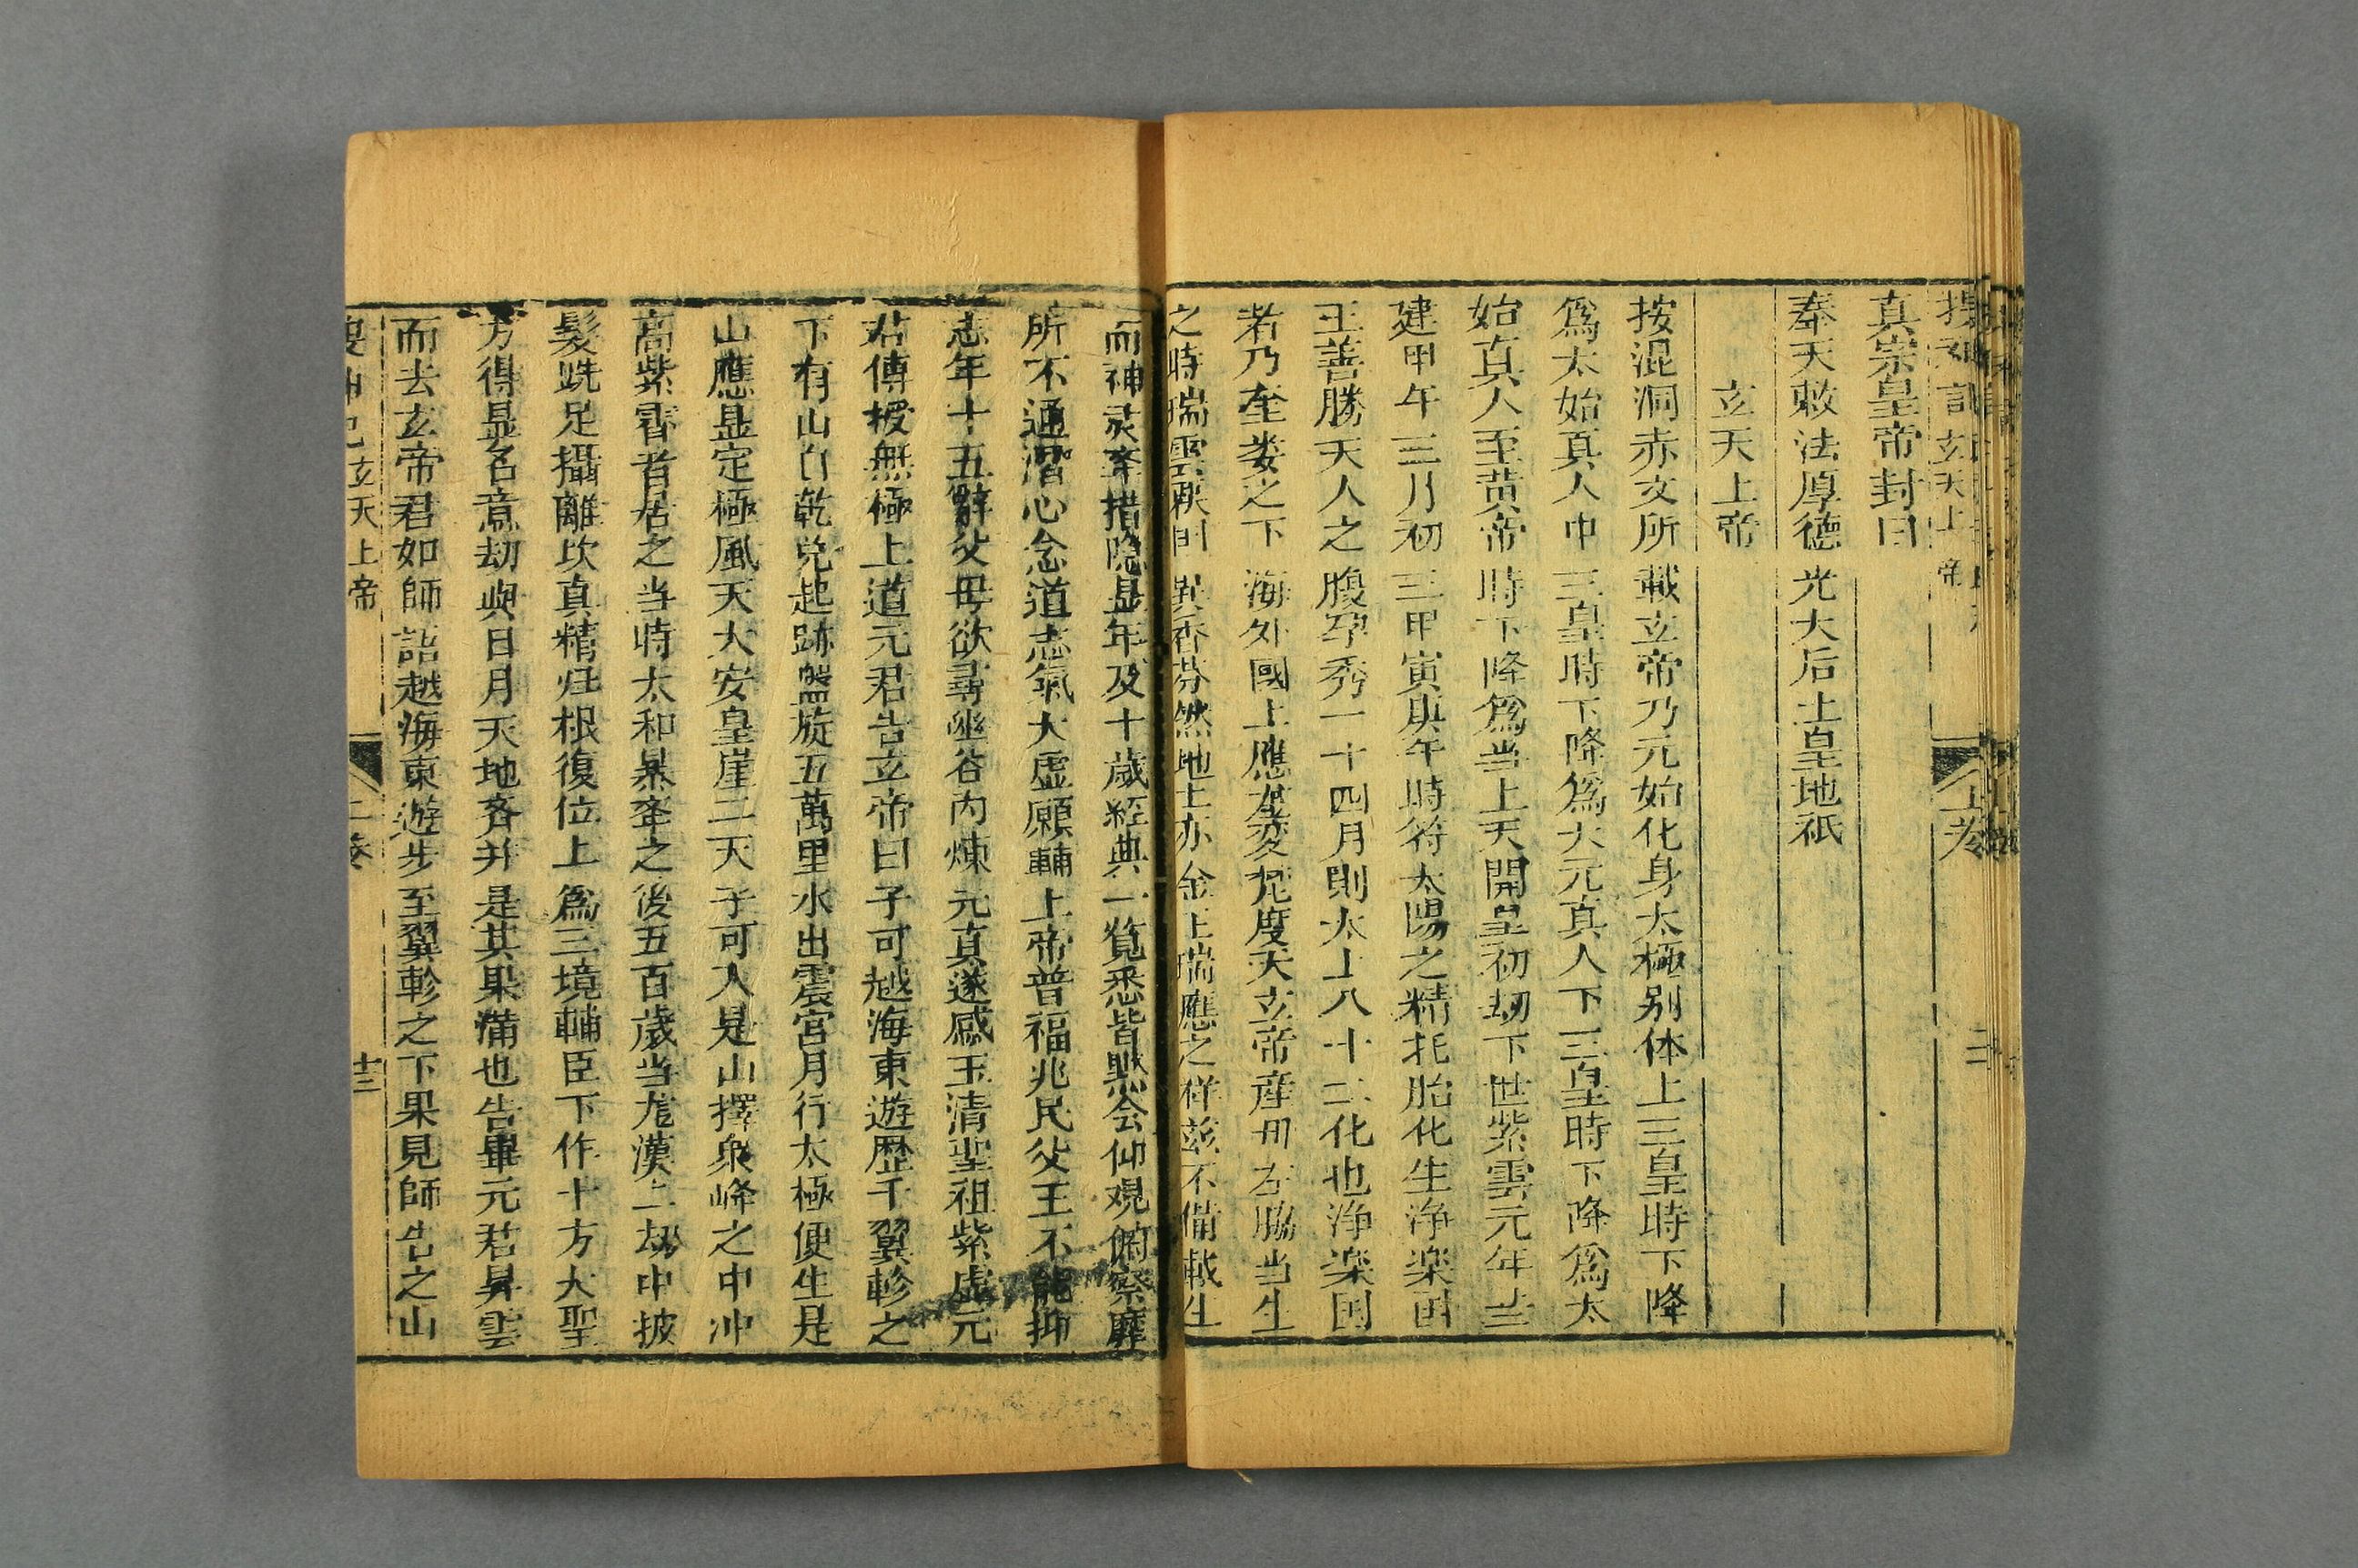 搜神記 玄天上帝 上卷
真宗皇帝封曰
奉天敕法厚德光大后土皇地祇
玄天上帝
按混洞赤文所載玄帝乃元始化身太極别体上三皇時下降
爲太始真人中三皇時下降爲太元真人下三皇時下降爲太
始真人至黄帝時下降爲当上天開皇初劫下世紫雲元年歲
建甲午三月初三甲寅庚午時符太陽之精托胎化生浄楽国
王善勝天人之腹孕秀一十四月則太上八十二化也浄楽国
者乃奎娄之下海外國上應龙变梵度天玄帝産母左脇当生
之時瑞雲覆国異香芬然地土亦金玉瑞應之祥兹不備載生
而神灵举措隐显年及十歲經典一覧悉皆黙会仰观俯察靡
所不通潛心念道志氣太虚願輔上帝普福兆民父王不能抑
志年十五辭父母欲尋幽谷内煉元真遂感玉清聖祖紫虚元
君傳授無極上道元君告玄帝曰子可越海東遊歷于翼軫之
下有山自乾兌起跡盤旋五萬里水出震宫月行太極便生是
山應显定極風天太安皇崖二天子可入是山擇衆峰之中冲
高紫霄者居之当時太和昇举之後五百歲当龙漢二劫中披
髮跣足攝離坎真精归根復位上爲三境輔臣下作十方大聖
方得显名意劫與日月天地齐并是其果满也告畢元君昇雲
而去玄帝君如師語越海東遊步至翼軫之下果見師告之山
搜神記 玄天上帝 上卷 十三